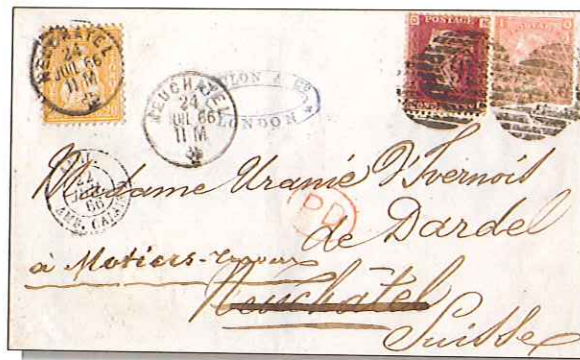 NEUCHATEL
24
JUIL 66
11 M
NEUCHATEL
24
JUIL 66
11 M
LONDON
22
66
AMB. CALAIS
PD
Madame Uranie d'Ivernois
de Dardel
à Motiers-Travers
Neuchâtel
Suisse